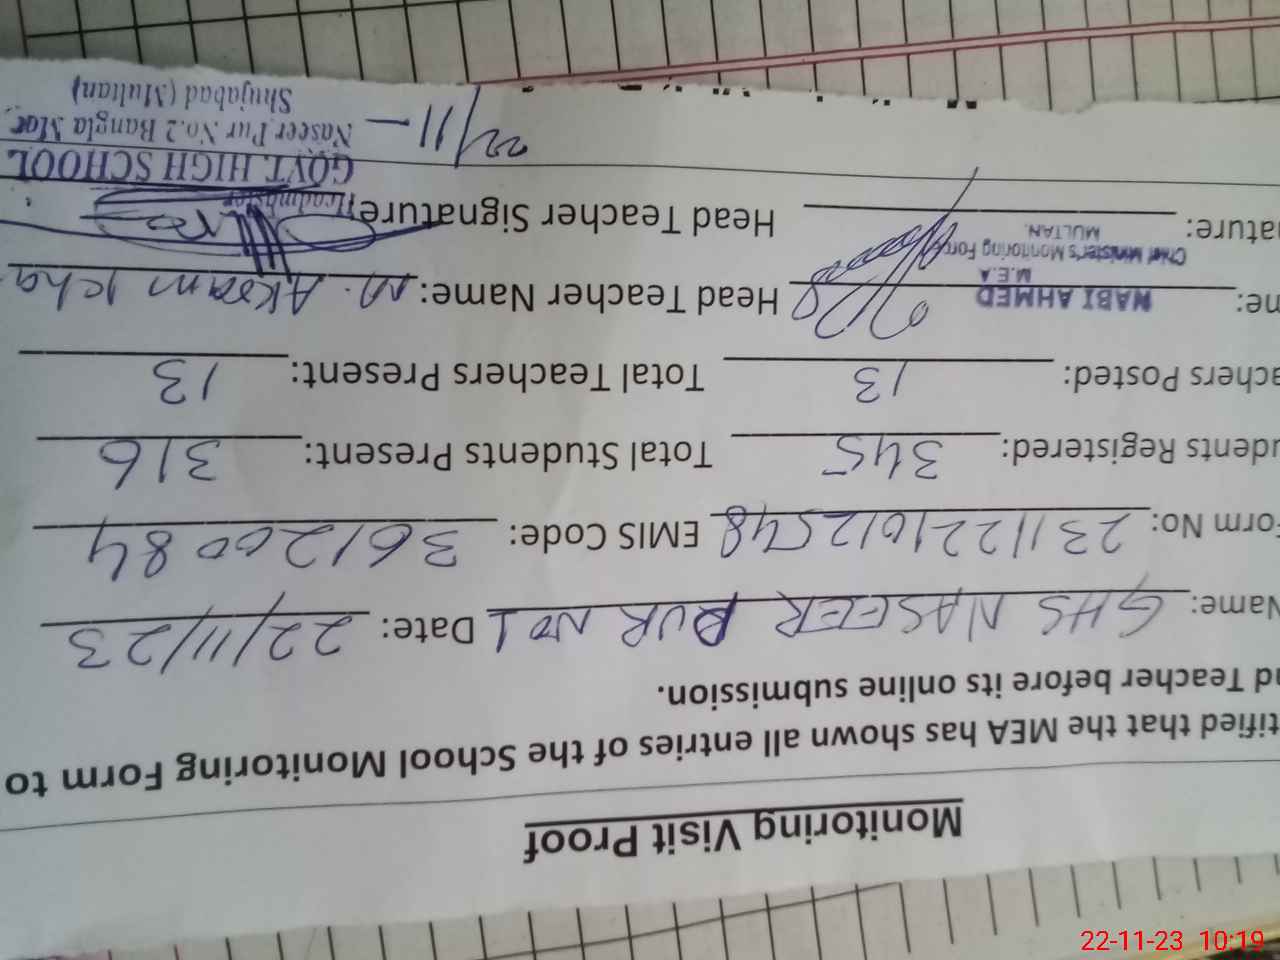 Monitoring Visit Proof
tified that the MEA has shown all entries of the School Monitoring Form to
d Teacher before its online submission.
Name: GHS NASEER PUR NO 1 Date: 22/11/23
Form No: 2311221012548 EMIS Code: 36120084
udents Registered: 345 Total Students Present: 316
achers Posted: 13 Total Teachers Present: 13
me: NABI AHMED Head Teacher Name: M. Akram Kha
M.E.A
Chief Minister's Monitoring Force
MULTAN.
ature: Head Teacher Signature:
Headmaster
GOVT. HIGH SCHOOL
Naseer Pur No.2 Bangla Mor
Shujabad (Multan)
22/11
22-11-23 10:19